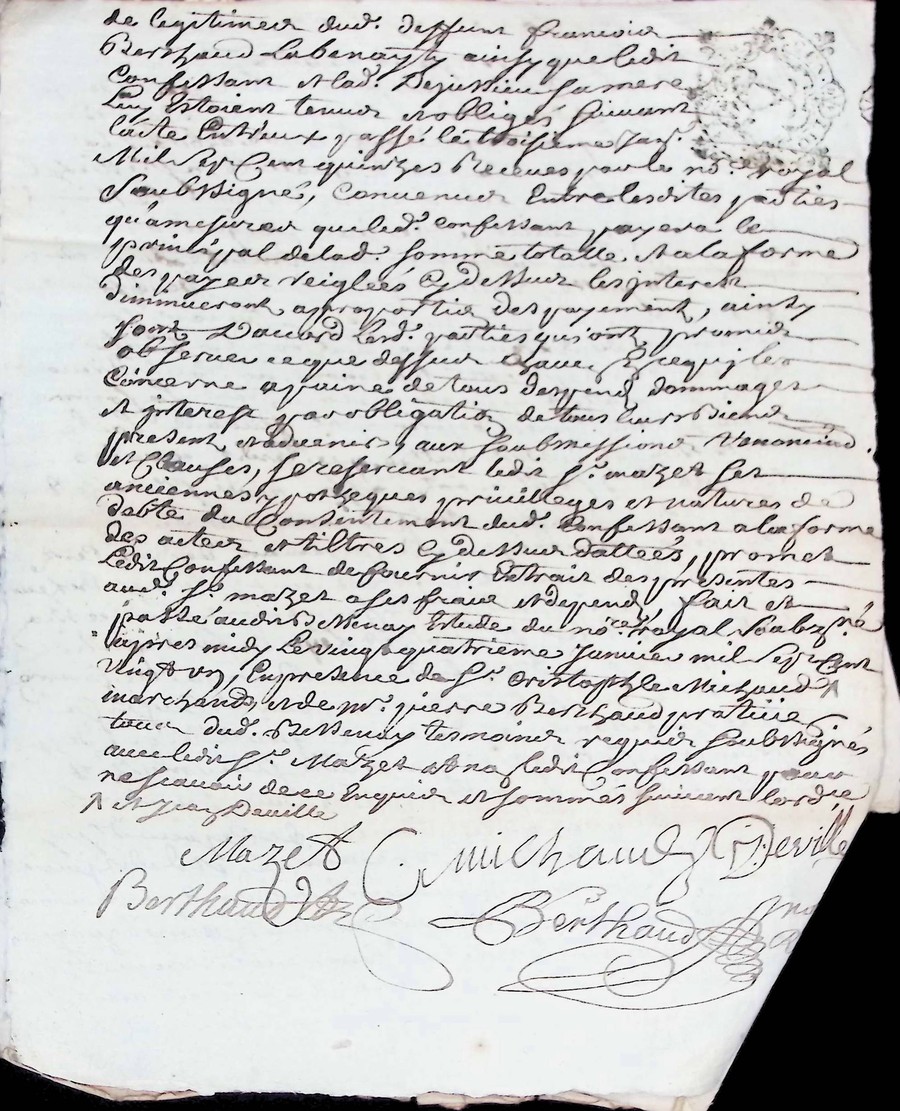 de legitimes dud. deffunt francois
Berthaud Labenayty ainsy que ledit
Confessant et lad. Dejussieu sa mere
Luy Estoient tenus et obligés suivant
lacte Entreux passé le troisieme
Mil sept Cent quinzes Receues par le no.re royal
Soubsigné, Convenus Entre lesdites parties
qu'amesures que led. confessant payera le
principal de lad. somme totalle et a la forme
des payes reiglées cy dessus les jnterets
diminueront a proportio des payement, ainsy
sont D'accord lesd. parties qui ont promis
observer ce que dessus Chacun En ce qui les
Concerne a peine de tous despens dommages
et jnterest par obligatio de tous leurs biens
present et advenir, aux soubmissions Renonciaõ
et Clauses, se reservant ledit Sr. mazet ses
anciennes ypotheques privilleges et natures de
debte du Consentement dud. Confessant a la forme
des actes et tiltres cy dessus dattées, promet
Ledit Confessant de fournir Extrait des presentes
aud. Sr. mazet a ses frais et depens, fait et
passé audit Bessenay Estude du no.re royal Soubzné
apres midy Le vingt quatrieme Janvier mil sept Cent
vingt un, En presence de Sr. Cristophle Michaud ^
marchands, et de mr. pierre Berthaud praticie
tous dud. Bessenay tesmoins requis Soubsignés
avec ledit Sr. Mazet et na ledit Confessant pour
ne scavoir de ce Enquis et sommés suivant lordce
^ et Jean Deville
Mazet C. Michaud J Deville
Berthaud
Berthaud